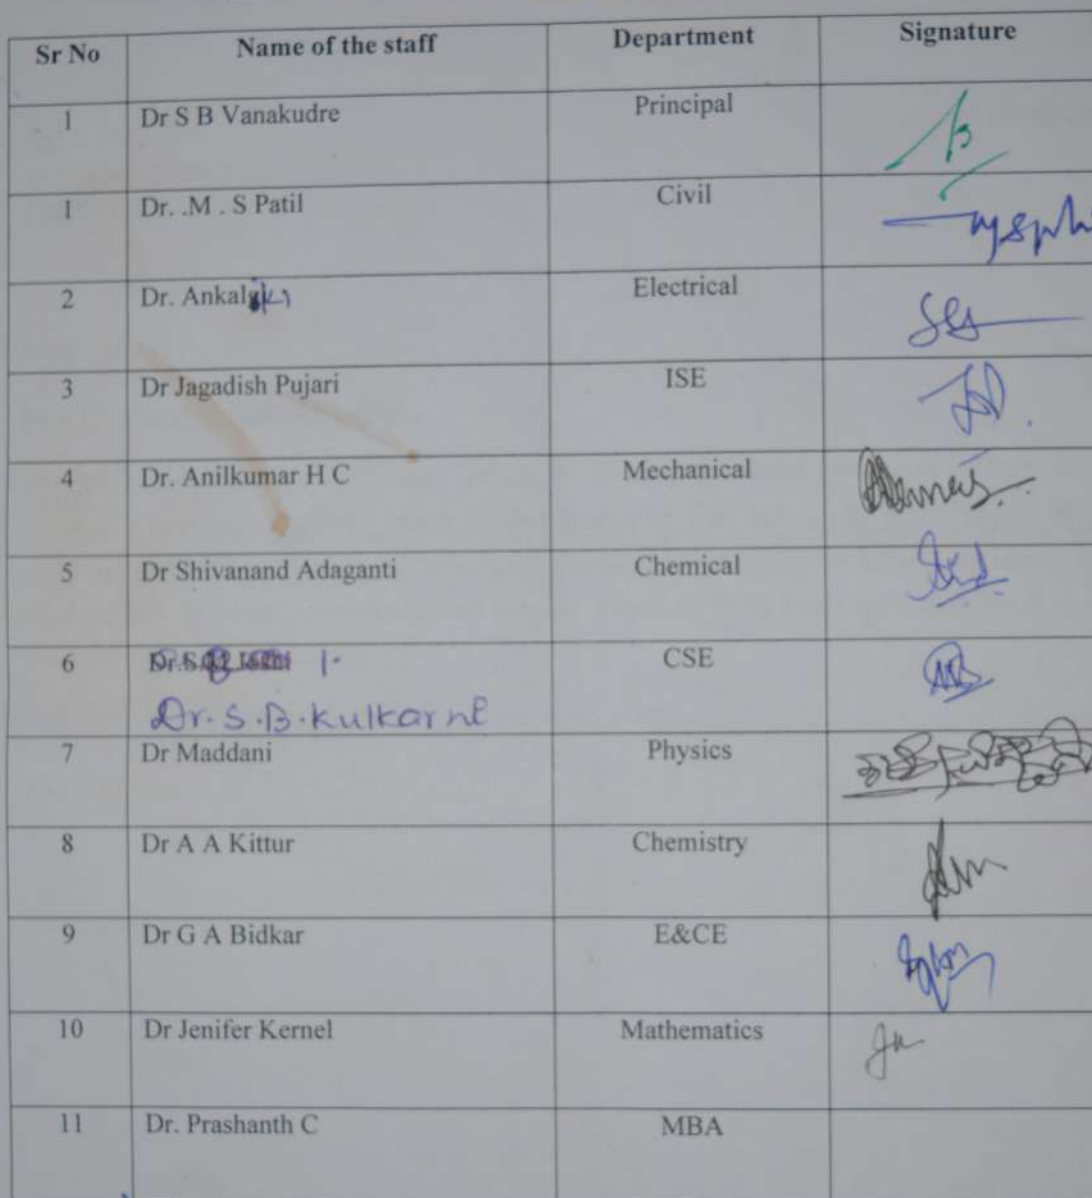 Sr No Name of the staff Department Signature
1 Dr S B Vanakudre Principal
1 Dr. .M . S Patil Civil
2 Dr. Ankalgki Electrical
3 Dr Jagadish Pujari ISE
4 Dr. Anilkumar H C Mechanical
5 Dr Shivanand Adaganti Chemical
6 CSE
Dr. S.B. Kulkarni
7 Dr Maddani Physics
8 Dr A A Kittur Chemistry
9 Dr G A Bidkar E&CE
10 Dr Jenifer Kernel Mathematics
11 Dr. Prashanth C MBA